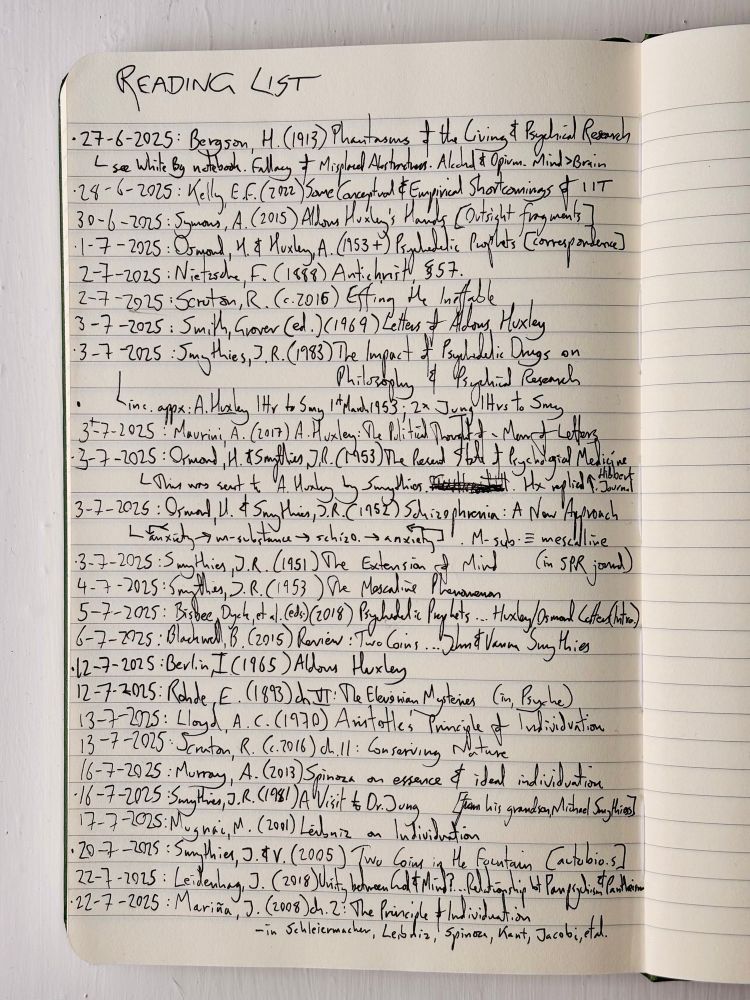 READING LIST
· 27-6-2025: Bergson, H. (1913) Phantasms of the Living & Psychical Research
└ see White Bg notebook. Fallacy of Misplaced Abstractness. Alcohol & Opium. Mind>Brain
· 28-6-2025: Kelly E.F. (2022) Some Conceptual & Empirical Shortcomings of IIT
30-6-2025: Symons, A. (2015) Aldous Huxley's Hands [Outsight Fragments]
· 1-7-2025: Osmond, H. & Huxley, A. (1953+) Psychedelic Prophets [correspondence]
2-7-2025: Nietzsche, F. (1888) Antichrist, §57.
2-7-2025: Scruton, R. (c.2016) Effing the Ineffable
3-7-2025: Smith, Grover (ed.) (1969) Letters of Aldous Huxley
· 3-7-2025: Smythies, J.R. (1983) The Impact of Psychedelic Drugs on
Philosophy & Psychical Research
· └ inc. appx: A. Huxley ltr to Smy 1st March 1953; 2x Jung ltrs to Smy
3-7-2025: Maurini, A. (2017) A. Huxley: The Political Thought of a Man of Letters
· 3-7-2025: Osmond, H. & Smythies, J.R. (1953) The Present State of Psychological Medicine
└ This was sent to A. Huxley by Smythies. Hx replied ↑ Hibbert Journal
3-7-2025: Osmond, H. & Smythies, J.R. (1952) Schizophrenia: A New Approach
└ anxiety → m-substance → schizo. → anxiety] M-sub. ≡ mescaline
· 3-7-2025: Smythies, J.R. (1951) The Extension of Mind (in SPR journal)
4-7-2025: Smythies, J.R. (1953) The Mescaline Phenomenon
5-7-2025: Bisbee, Dyck, et al. (eds.) (2018) Psychedelic Prophets ... Huxley/Osmond Letters (Intro.)
6-7-2025: Blackwell, B. (2015) Review: Two Coins ... John & Vanna Smythies
· 12-7-2025: Berlin, I (1965) Aldous Huxley
12-7-2025: Rohde, E. (1893) ch VI: The Eleusinian Mysteries (in, Psyche)
13-7-2025: Lloyd, A.C. (1970) Aristotle's Principle of Individuation
13-7-2025: Scruton, R. (c.2016) ch. 11: Conserving Nature
16-7-2025: Murray, A. (2013) Spinoza on essence & ideal individuation
· 16-7-2025: Smythies, J.R. (1981) A Visit to Dr. Jung [from his grandson, Michael Smythies]
17-7-2025: Mugnai, M. (2001) Leibniz on Individuation
· 20-7-2025: Smythies, J. & V. (2005) Two Coins in the Fountain [autobio.s]
22-7-2025: Leidenhag, J. (2018) Unity between God & Mind? ... Relationship bt Panpsychism & Pantheism
· 22-7-2025: Mariña, J. (2008) ch. 2: The Principle of Individuation
– in Schleiermacher, Leibniz, Spinoza, Kant, Jacobi, et al.